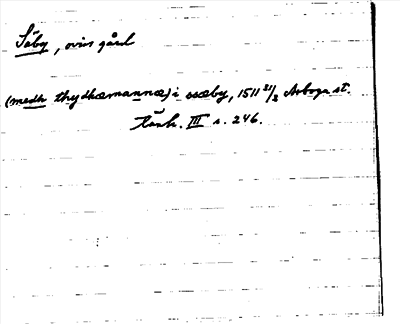 Säby, övers gård
(medh thydhæmannæ) i sæby, 1511 21/2 Arboga st.
tänk. III s. 246.